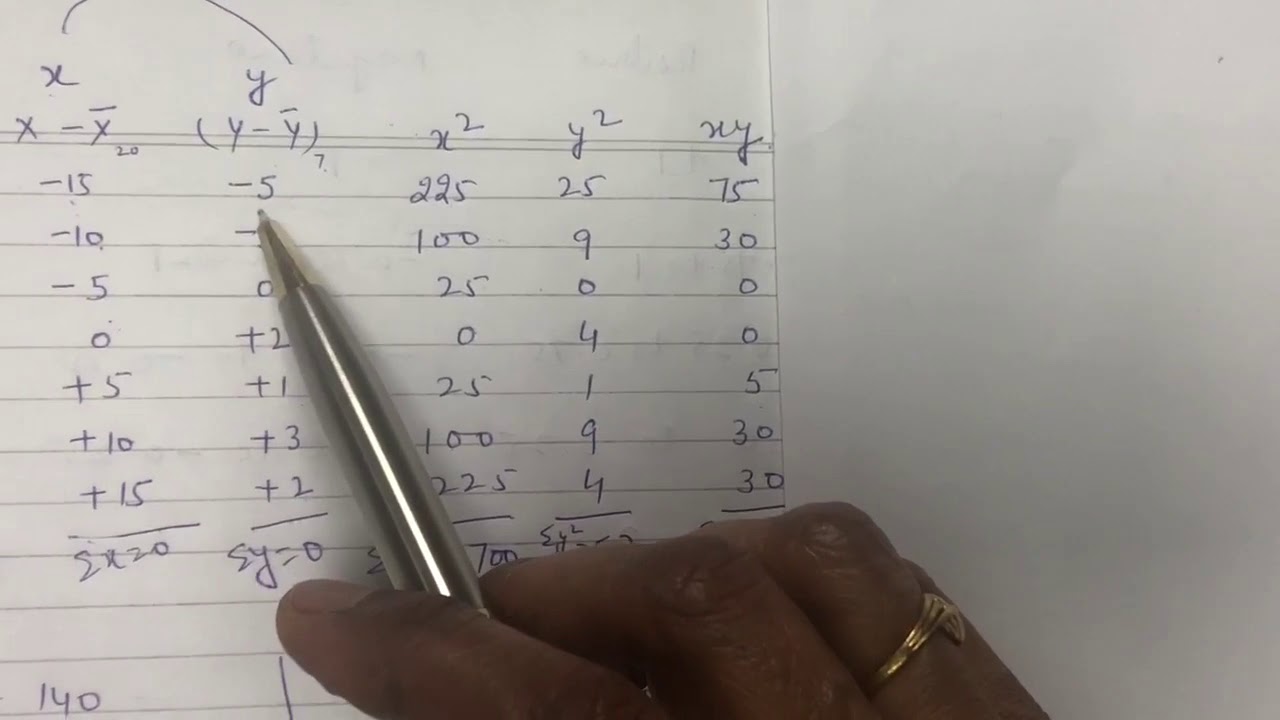 x y
X - X̄ 20 (Y - Ȳ) 7 x² y² xy
-15 -5 225 25 75
-10 - 100 9 30
-5 0 25 0 0
0 +2 0 4 0
+5 +1 25 1 5
+10 +3 100 9 30
+15 +2 225 4 30
Σx=0 Σy=0 Σ 700 Σy²
140